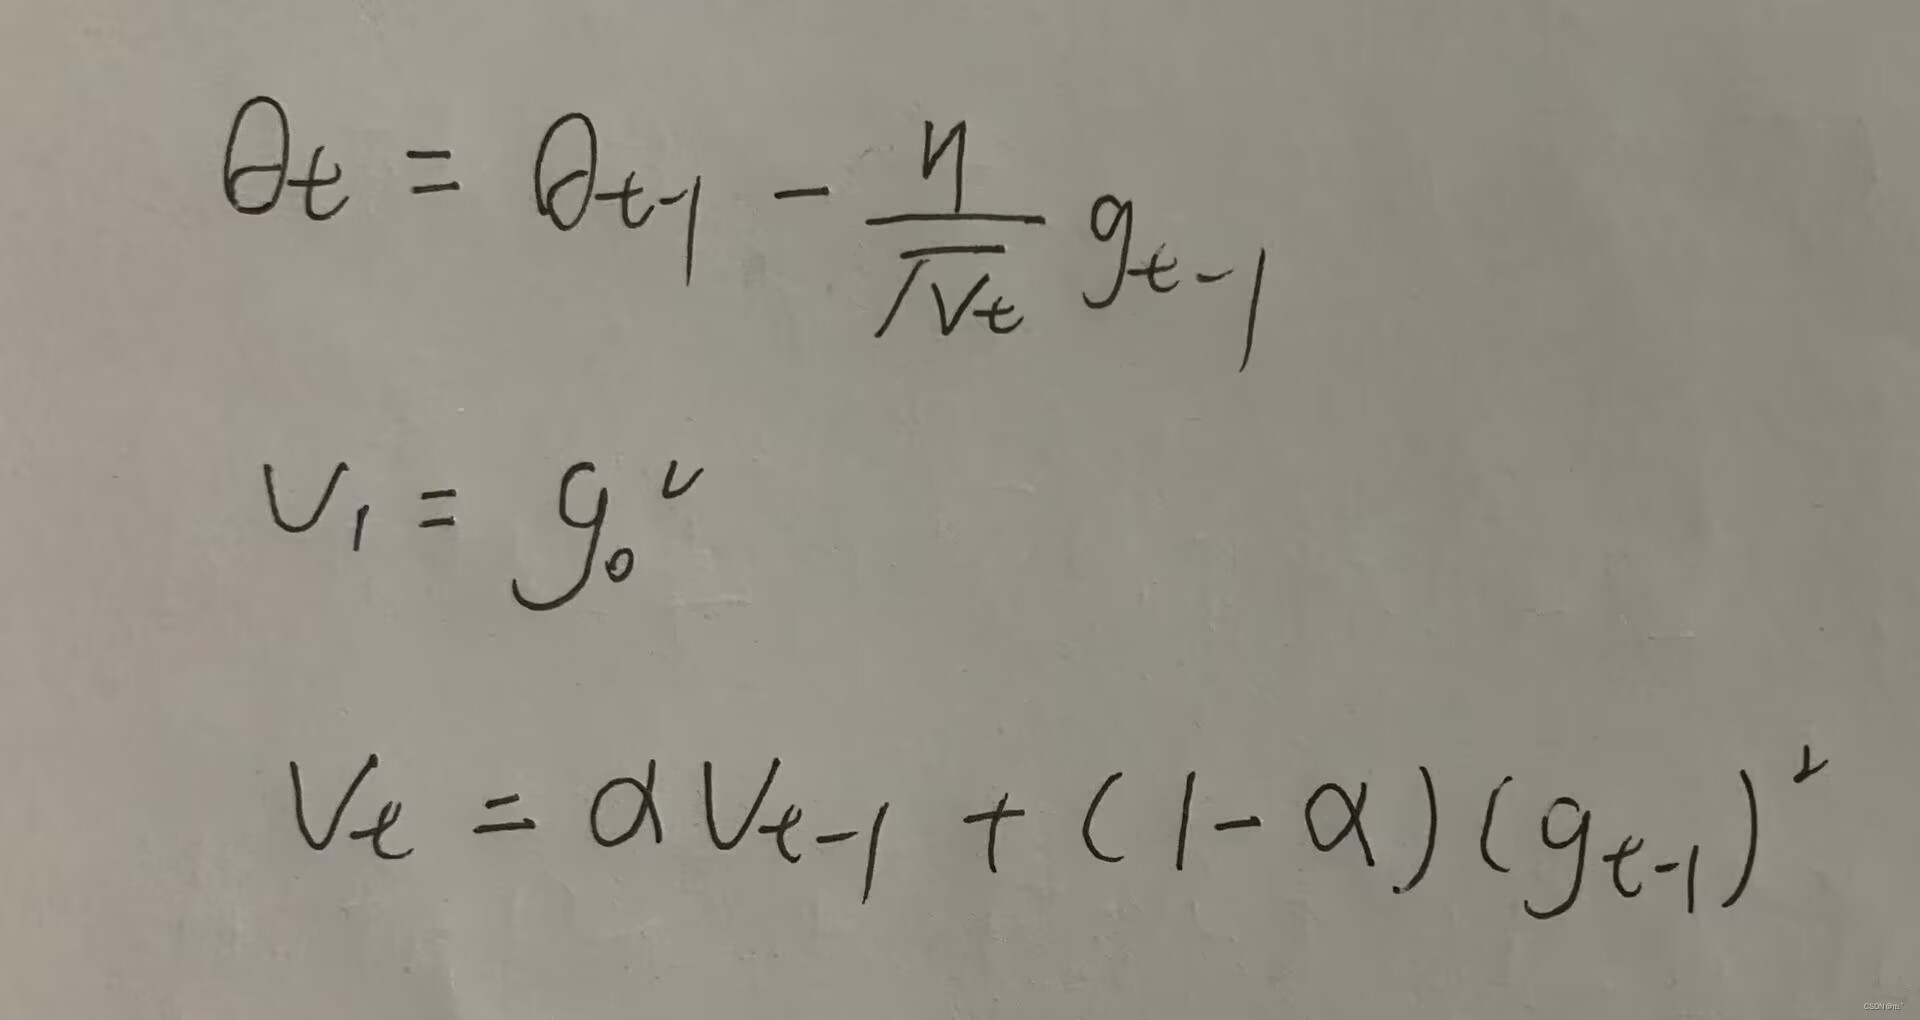 θ_t = θ_{t-1} - \frac{η}{\sqrt{v_t}} g_{t-1}
v_1 = g_0^2
v_t = α v_{t-1} + (1 - α)(g_{t-1})^2